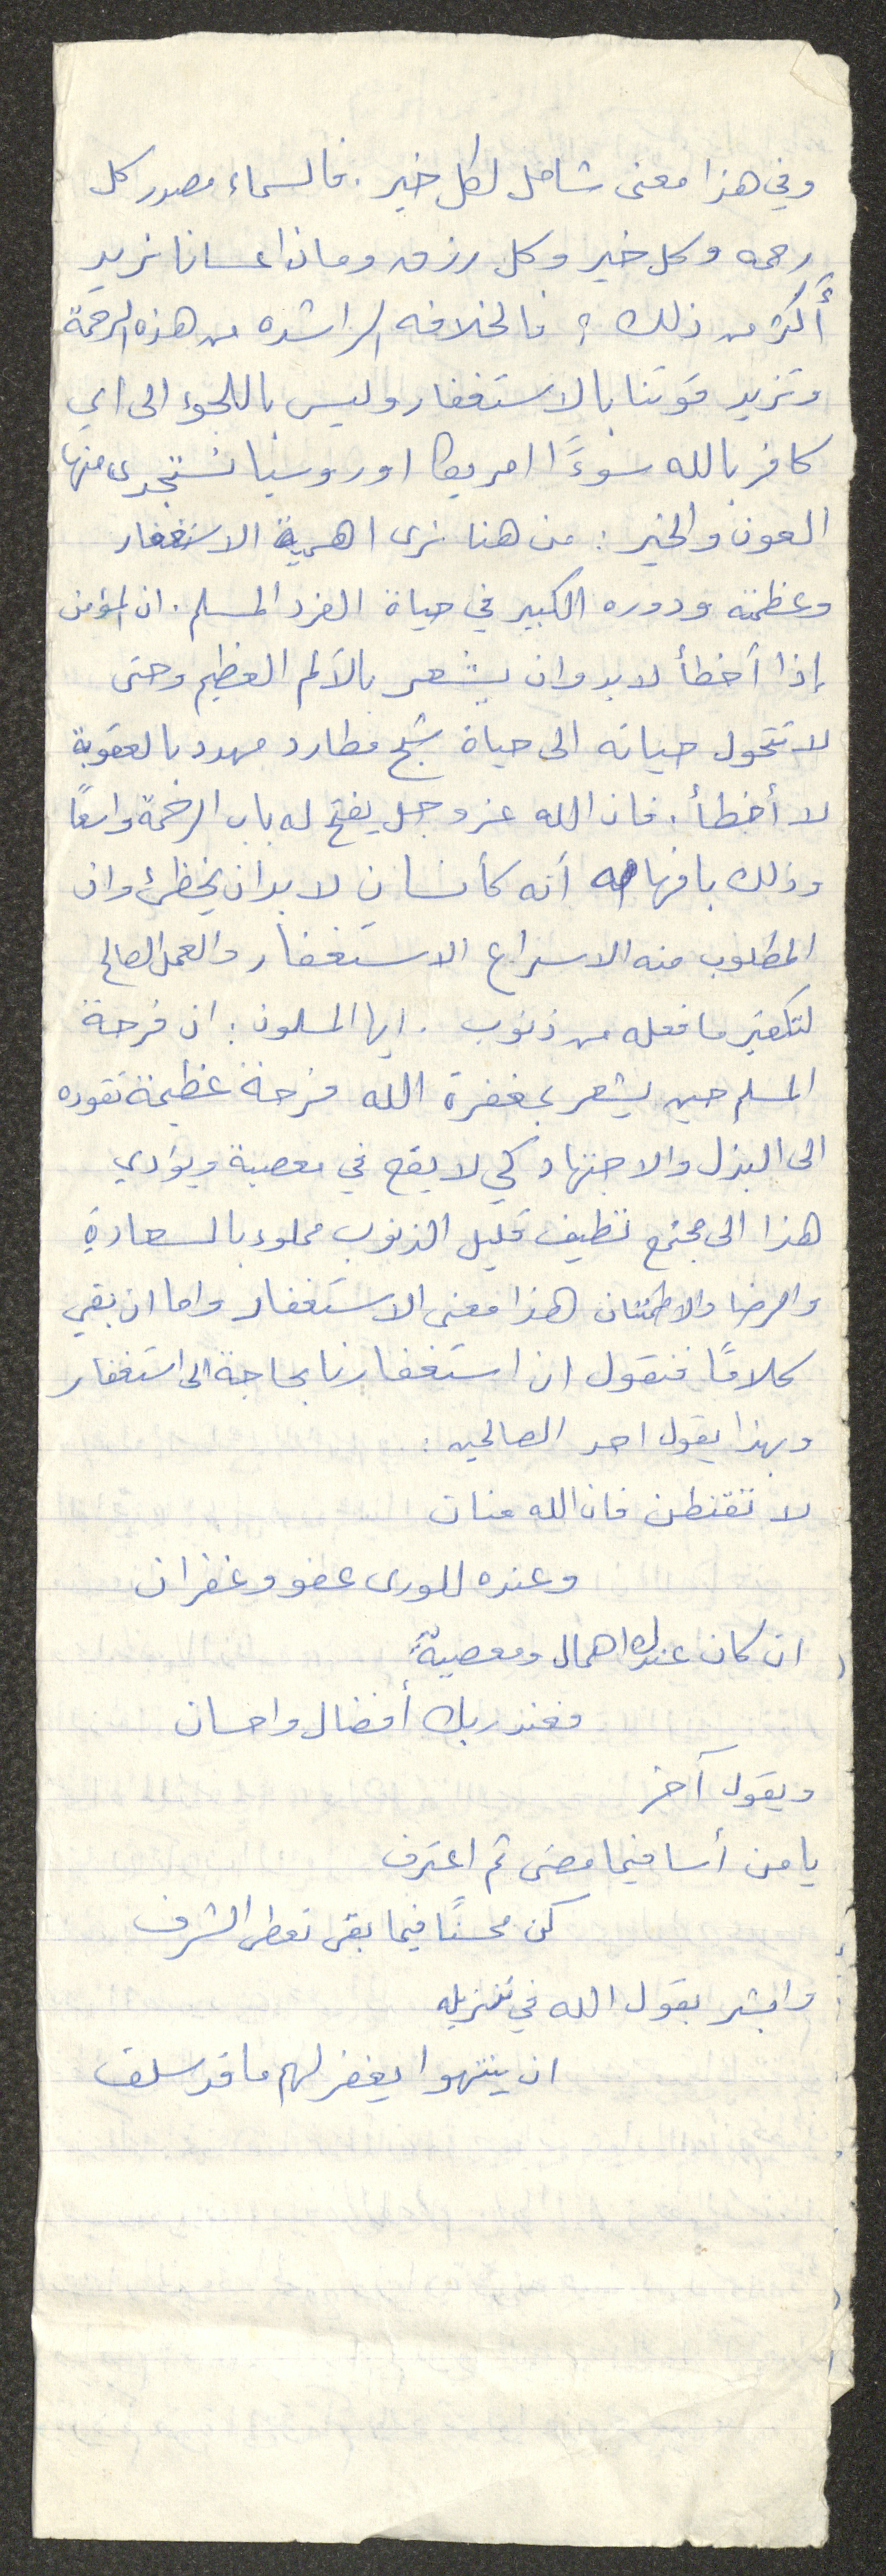 وفي هذا معنى شامل لكل خير. فالسماء مصدر كل
رحمه وكل خير وكل رزق وماذا عسانا نريد
أكثر من ذلك؟ فالخلافه الراشده من هذه الرحمة
وتزيد قوتنا بالاستغفار وليس باللجوء الى اي
كافر بالله سوءًا امريكا او روسيا نستجدى منها
العون والخير: من هنا نرى اهمية الاستغفار
وعظمته ودوره الكبير في حياة الفرد المسلم. ان المؤمن
إذا أخطأ لابد وان يشعر بالألم العظيم وحتى
لا تتحول حياته الى حياة شبح مطارد مهدد بالعقوبة
لا أخطأ. فان الله عز وجل يفتح له باب الرحمة واسعًا
وذلك بافهامه أنه كأنسان لابد ان يخطئ وان
المطلوب منه الاسراع الاستغفار والعمل الصالح
لتكفير ما فعله من ذنوب. ايها المسلمون: ان فرحة
المسلم حين يشعر بمغفرة الله فرحة عظيمة تقوده
الى البذل والاجتهاد كي لا يقع في معصية ويؤدي
هذا الى مجتمع نظيف قليل الذنوب مملوء بالسعادة
والرضا والاطمئنان هذا معنى الاستغفار واما ان بقي
كلامًا فنقول ان استغفارنا بحاجة الى استغفار
وبهذا يقول احد الصالحين:
لا تقنطن فان الله منان
وعنده للورى عفو وغفران
ان كان عندك اهمال ومعصيةٌ
فعند ربك أفضال واحسان
ويقول آخر
يا من أسا فيما مضى ثم اعترف
كن محسنًا فيما بقى تعطى الشرف
وابشر بقول الله في تنزيله
ان ينتهوا يغفر لهم ما قد سلف